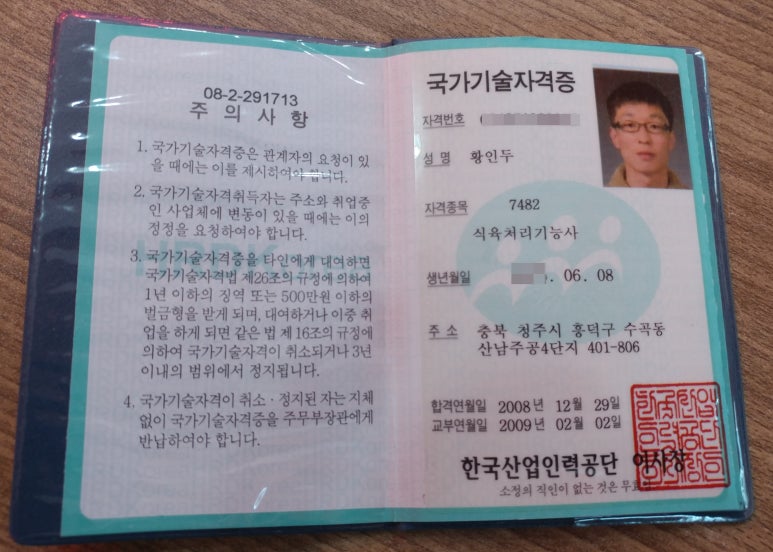 08-2-291713
주 의 사 항
1. 국가기술자격증은 관계자의 요청이 있
을 때에는 이를 제시하여야 합니다.
2. 국가기술자격취득자는 주소와 취업중
인 사업체에 변동이 있을 때에는 이의
정정을 요청하여야 합니다.
3. 국가기술자격증을 타인에게 대여하면
국가기술자격법 제26조의 규정에 의하여
1년 이하의 징역 또는 500만원 이하의
벌금형을 받게 되며, 대여하거나 이중 취
업을 하게 되면 같은 법 제16조의 규정에
의하여 국가기술자격이 취소되거나 3년
이내의 범위에서 정지됩니다.
4. 국가기술자격이 취소·정지된 자는 지체
없이 국가기술자격증을 주무부장관에게
반납하여야 합니다.
국가기술자격증
자격번호
성 명 황인두
자격종목 7482
식육처리기능사
생년월일 . 06. 08
주 소 충북 청주시 흥덕구 수곡동
산남주공4단지 401-806
합격연월일 2008 년 12 월 29 일
교부연월일 2009 년 02 월 02 일
한국산업인력공단 이사장
소정의 직인이 없는 것은 무효임